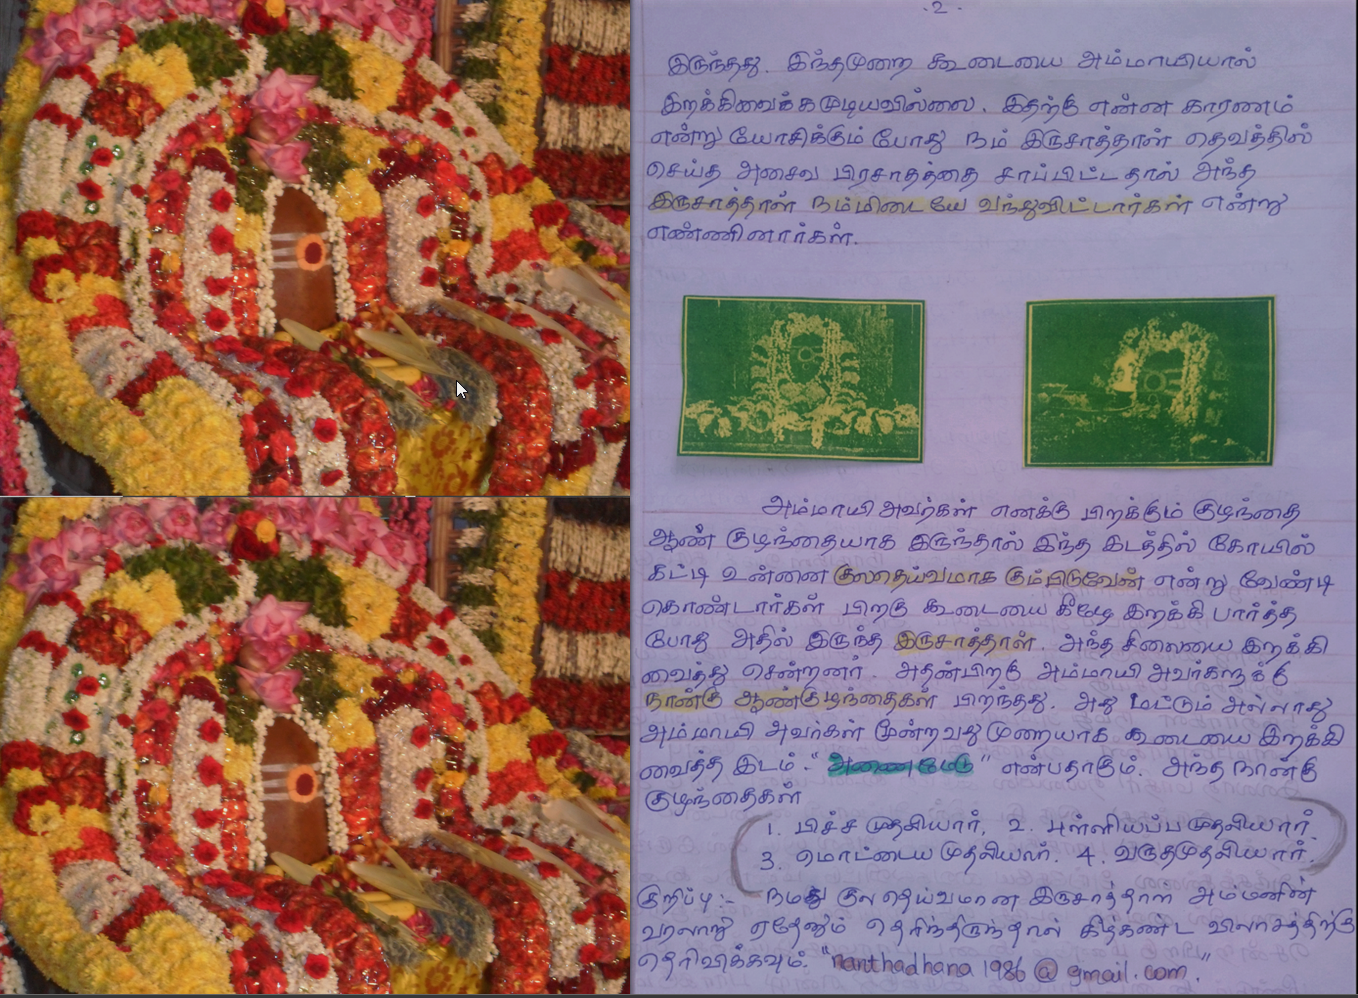 -2-
இருந்தது. இந்தமுறை கூடையை அம்மாயியால்
இறக்கிவைக்கமுடியவில்லை. இதற்கு என்ன காரணம்
என்று யோசிக்கும்போது நம் இருசாத்தாள் தெவத்தில்
செய்த அசைவ பிரசாதத்தை சாப்பிட்டதால் அந்த
இருசாத்தாள் நம்மிடையே வந்துவிட்டார்கள் என்று
எண்ணினார்கள்.
அம்மாயி அவர்கள் எனக்கு பிறக்கும் குழந்தை
ஆண் குழந்தையாக இருந்தால் இந்த இடத்தில் கோயில்
கட்டி உன்னை குலதெய்வமாக கும்பிடுவேன் என்று வேண்டி
கொண்டார்கள் பிறகு கூடையை கீழே இறக்கி பார்த்த
போது அதில் இருந்த இருசாத்தாள். அந்த சிலையை இறக்கி
வைத்து சென்றனர். அதன்பிறகு அம்மாயி அவர்களுக்கு
நான்கு ஆண்குழந்தைகள் பிறந்தது. அது மட்டும் அல்லாது
அம்மாயி அவர்கள் மூன்றவது முறையாக கூடையை இறக்கி
வைத்த இடம். "அணைமேடு" என்பதாகும். அந்த நான்கு
குழந்தைகள்
1. பிச்ச முதலியார், 2. புள்ளியப்ப முதலியார்,
3. மொட்டைய முதலியார். 4. வருதமுதலியார்.
குறிப்பு:- நமது குலதெய்வமான இருசாத்தாள அம்மனின்
வரலாறு ஏதேனும் தெரிந்திருந்தால் கீழ்கண்ட விலாசத்திற்கு
தெரிவிக்கவும். "nanthadhana1986@gmail.com."